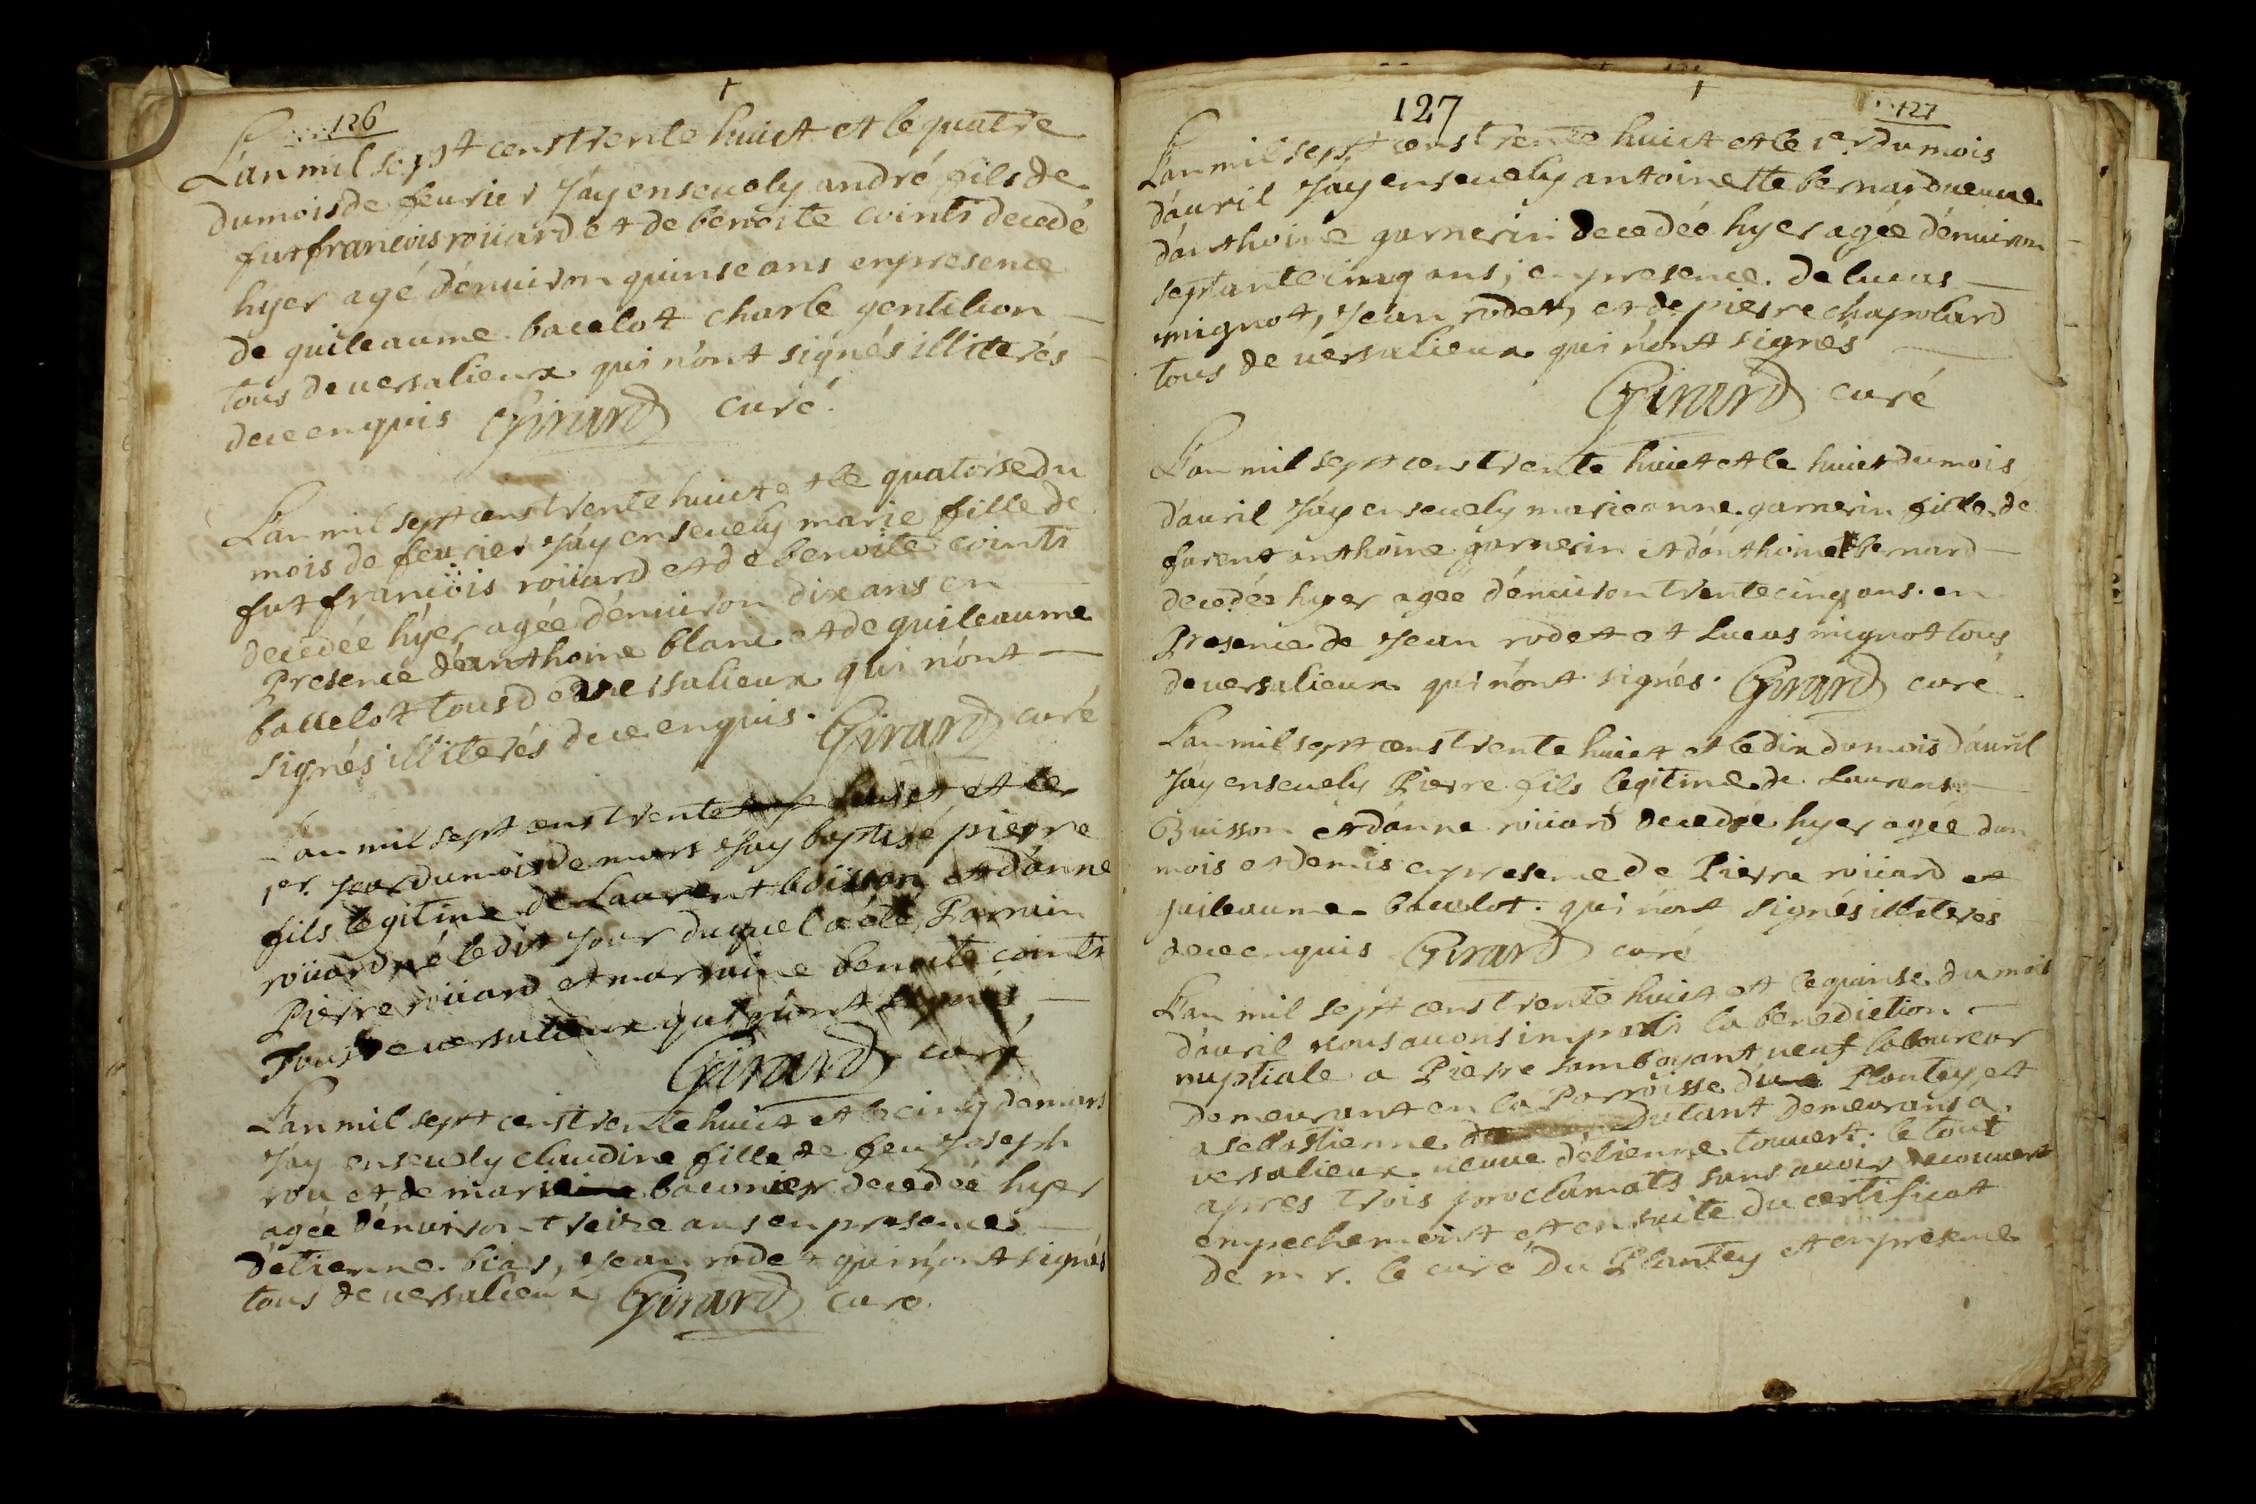 126
L'an mil sept cens trente huict et le quatre
du mois de feurier J'ay enseuely andré fils de
fut francois roüard et de benoite cointi decedé
hyer agé d'enuiron quinse ans en presence
de guileaume bacelot charle gentilion
tous de uersalieux qui n'ont signés illiterés
de ce enquis Girard curé.
L'an mil sept cens trente huict et le quatorse du
mois de feurier J'ay enseuely marie fille de
fut francois roüard et de benoite cointi
decedée hyer agée d'enuiron dix ans en
Presence d'anthoine blanc et de guileaume
baccelot tous de uersalieux qui n'ont
signés illiterés de ce enquis. Girard curé
L'an mil sept cens trente huict et le
1er. jour du mois de mars J'ay baptisé pierre
fils legitime de Laurent buisson et d'anne
roüard né le dit jour duquel a été Parrain
Pierre roüard et marraine benoite cointi
Tous de uersalieux qui n'ont signés
Girard curé
L'an mil sept cens trente huict et le cinq de mars
J'ay enseuely claudine fille de feu Joseph
rou et de marie baconier decedée hyer
agée d'enuiron treize ans en presence
d'etienne bias, Jean rodet qui n'ont signés
tous de uersalieux Girard curé.
127
127
L'an mil sept cens trente huict et le 1er. du mois
d'auril J'ay enseuely antoinette bernard ueuue
d'anthoine garnerin decedée hyer agée d'enuiron
septante cinq ans; en presence de lucas
mignot, Jean rodet, et de pierre chapolard
tous de uersalieux qui n'ont signés
Girard curé
L'an mil sept cens trente huict et le huict du mois
d'auril J'ay enseuely marieanne garnerin fille de
furent anthoine garnerin et d'anthoine bernard
decedée hyer agée d'enuiron trente cinq ans. en
Presence de Jean rodet et Lucas mignot tous
de uersalieux qui n'ont signés. Girard curé
L'an mil sept cens trente huict et le dix du mois d'auril
J'ay enseuely Pierre fils legitime de Laurens
Buisson et d'anne roüard decedée hyer agée d'un
mois et demis en presence de Pierre roüard et
guileaume bacelot. qui n'ont signés illiterés
de ce enquis Girard curé
L'an mil sept cens trente huict et le quinse du mois
d'auril nous auons imparti la benediction
nuptiale a Pierre Jamboyant ueuf laboureur
demeurant en la Parroisse du Plantey et
a sebastienne Dutant demeurans a
uersalieux ueuue d'etienne touuert. le tout
apres trois proclamats sans auoir decouuert
empechement et en suite du certificat
de m r. le curé Du Plantey et en presence